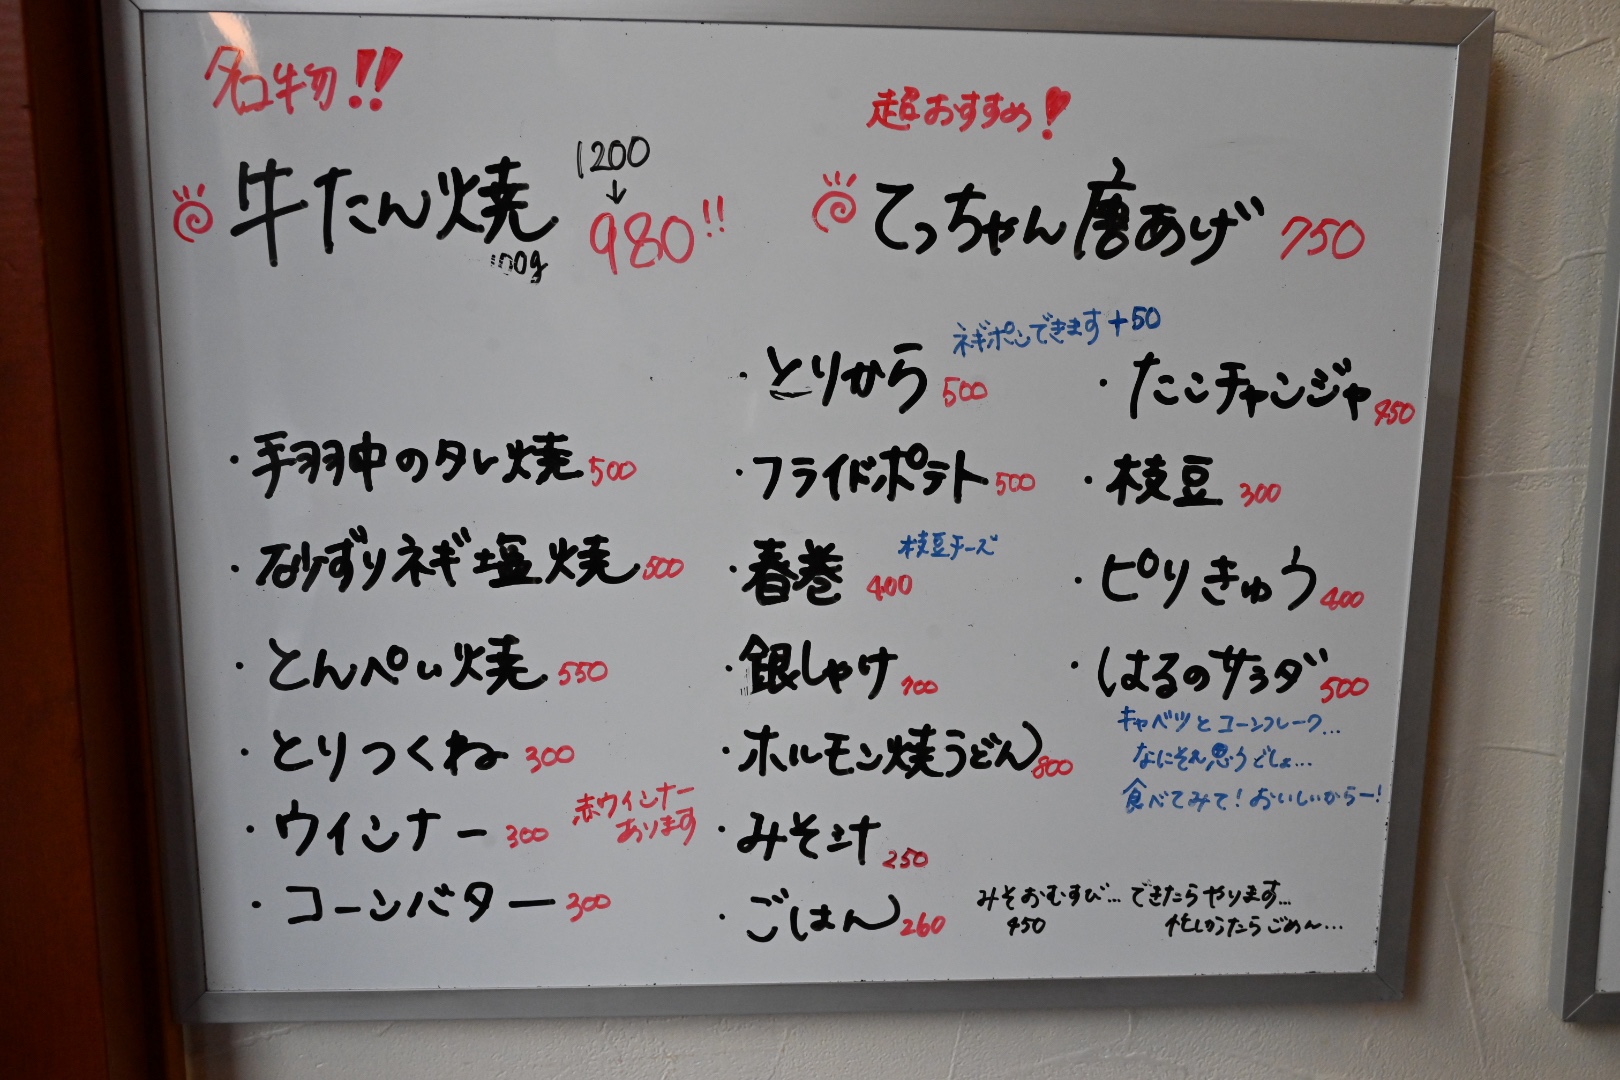 名物!!
牛たん焼 100g 1200
↓
980!!
超おすすめ!
てっちゃん唐あげ 750
・手羽中のタレ焼 500
・砂ずりネギ塩焼 500
・とんぺい焼 550
・とりつくね 300
・ウインナー 300 赤ウインナー
あります
・コーンバター 300
・とりから 500 ネギポンできます +50
・フライドポテト 500
・春巻 400 枝豆チーズ
・銀しゃけ 700
・ホルモン焼うどん 800
・みそ汁 250
・ごはん 260
・たこチャンジャ 450
・枝豆 300
・ピリきゅう 400
・はるのサラダ 500
キャベツとコーンフレーク…
なにそれ思うでしょ…
食べてみて!おいしいからー!
みそおむすび… できたらやります…
450 忙しかったらごめん…